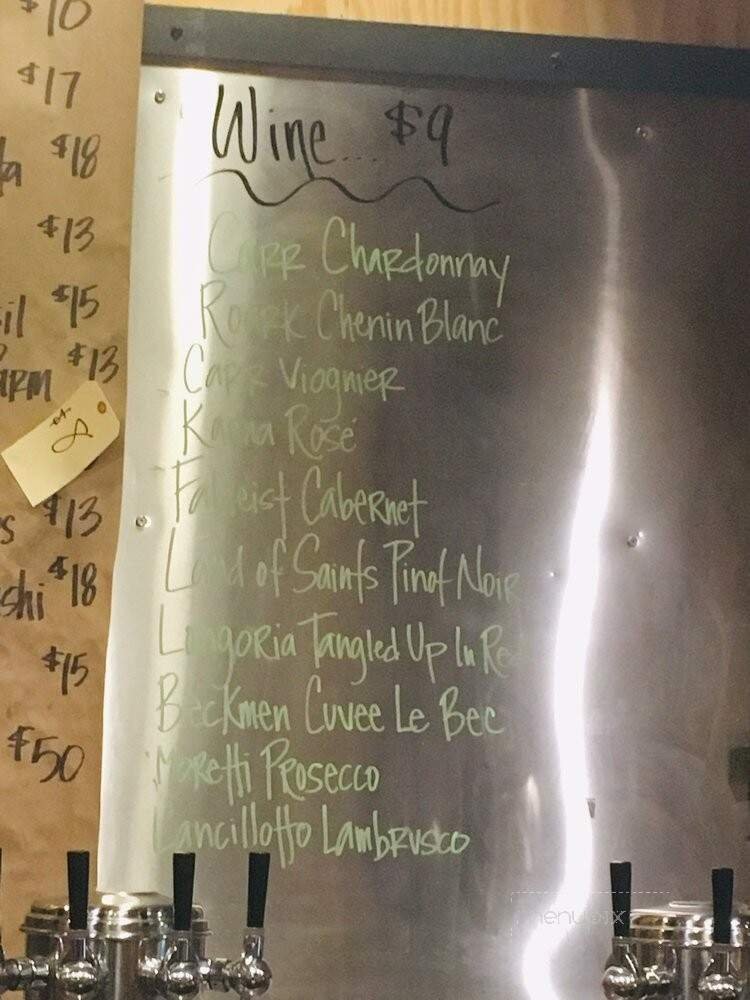 $10
$17
$18
$13
$15
$13
8
$13
shi $18
$15
$50
Wine.... $9
Carr Chardonnay
Roark Chenin Blanc
Carr Viognier
Rosé
Cabernet
Land of Saints Pinot Noir
Longoria Tangled Up In Red
Beckmen Cuvee Le Bec
Moretti Prosecco
Lancillotto Lambrusco
menupix